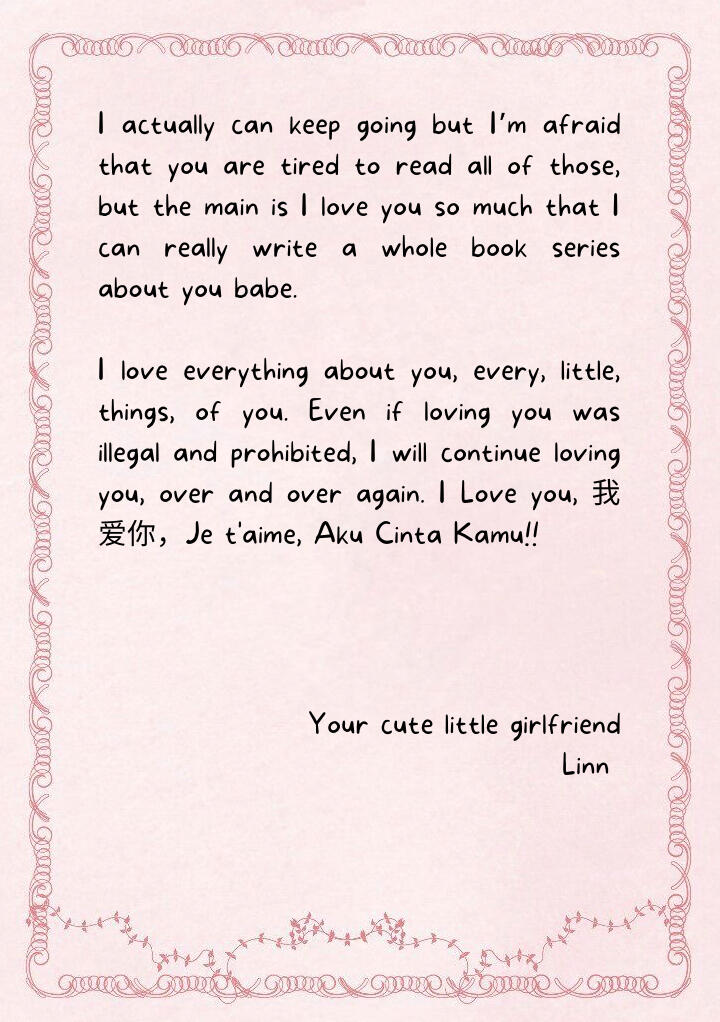 I actually can keep going but I'm afraid
that you are tired to read all of those,
but the main is I love you so much that I
can really write a whole book series
about you babe.
I love everything about you, every, little,
things, of you. Even if loving you was
illegal and prohibited, I will continue loving
you, over and over again. I Love you, 我
爱你，Je t'aime, Aku Cinta Kamu!!
Your cute little girlfriend
Linn